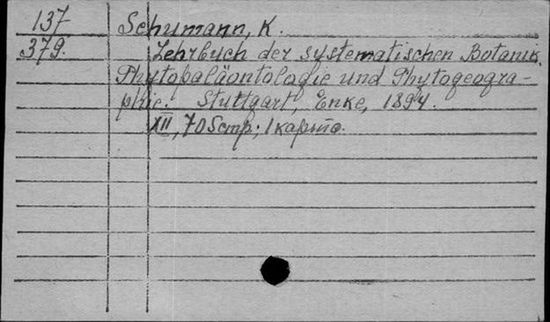 137 Schumann, K.
379. Lehrbuch der systematischen Botanik,
Phytopaläontologie und Phytogeogra-
phie. Stuttgart, Enke, 1894.
XII, 705 стр.; 1 карта.